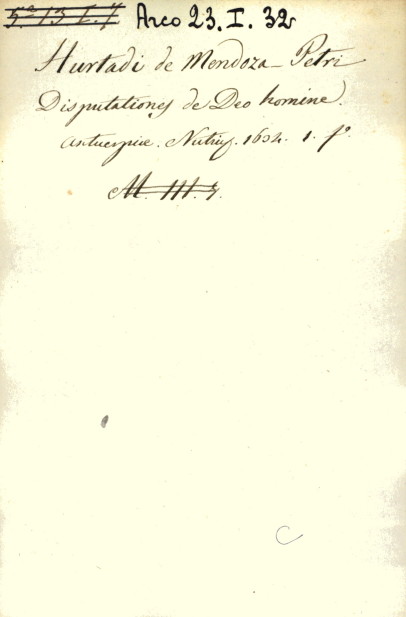 5ª 13 L. 7 Arco 23. I. 32
Hurtadi de Mendoza - Petri
Disputationes de Deo homine.
Antuerpiæ. Nutij. 1634. 1. fº
M. III. 7.